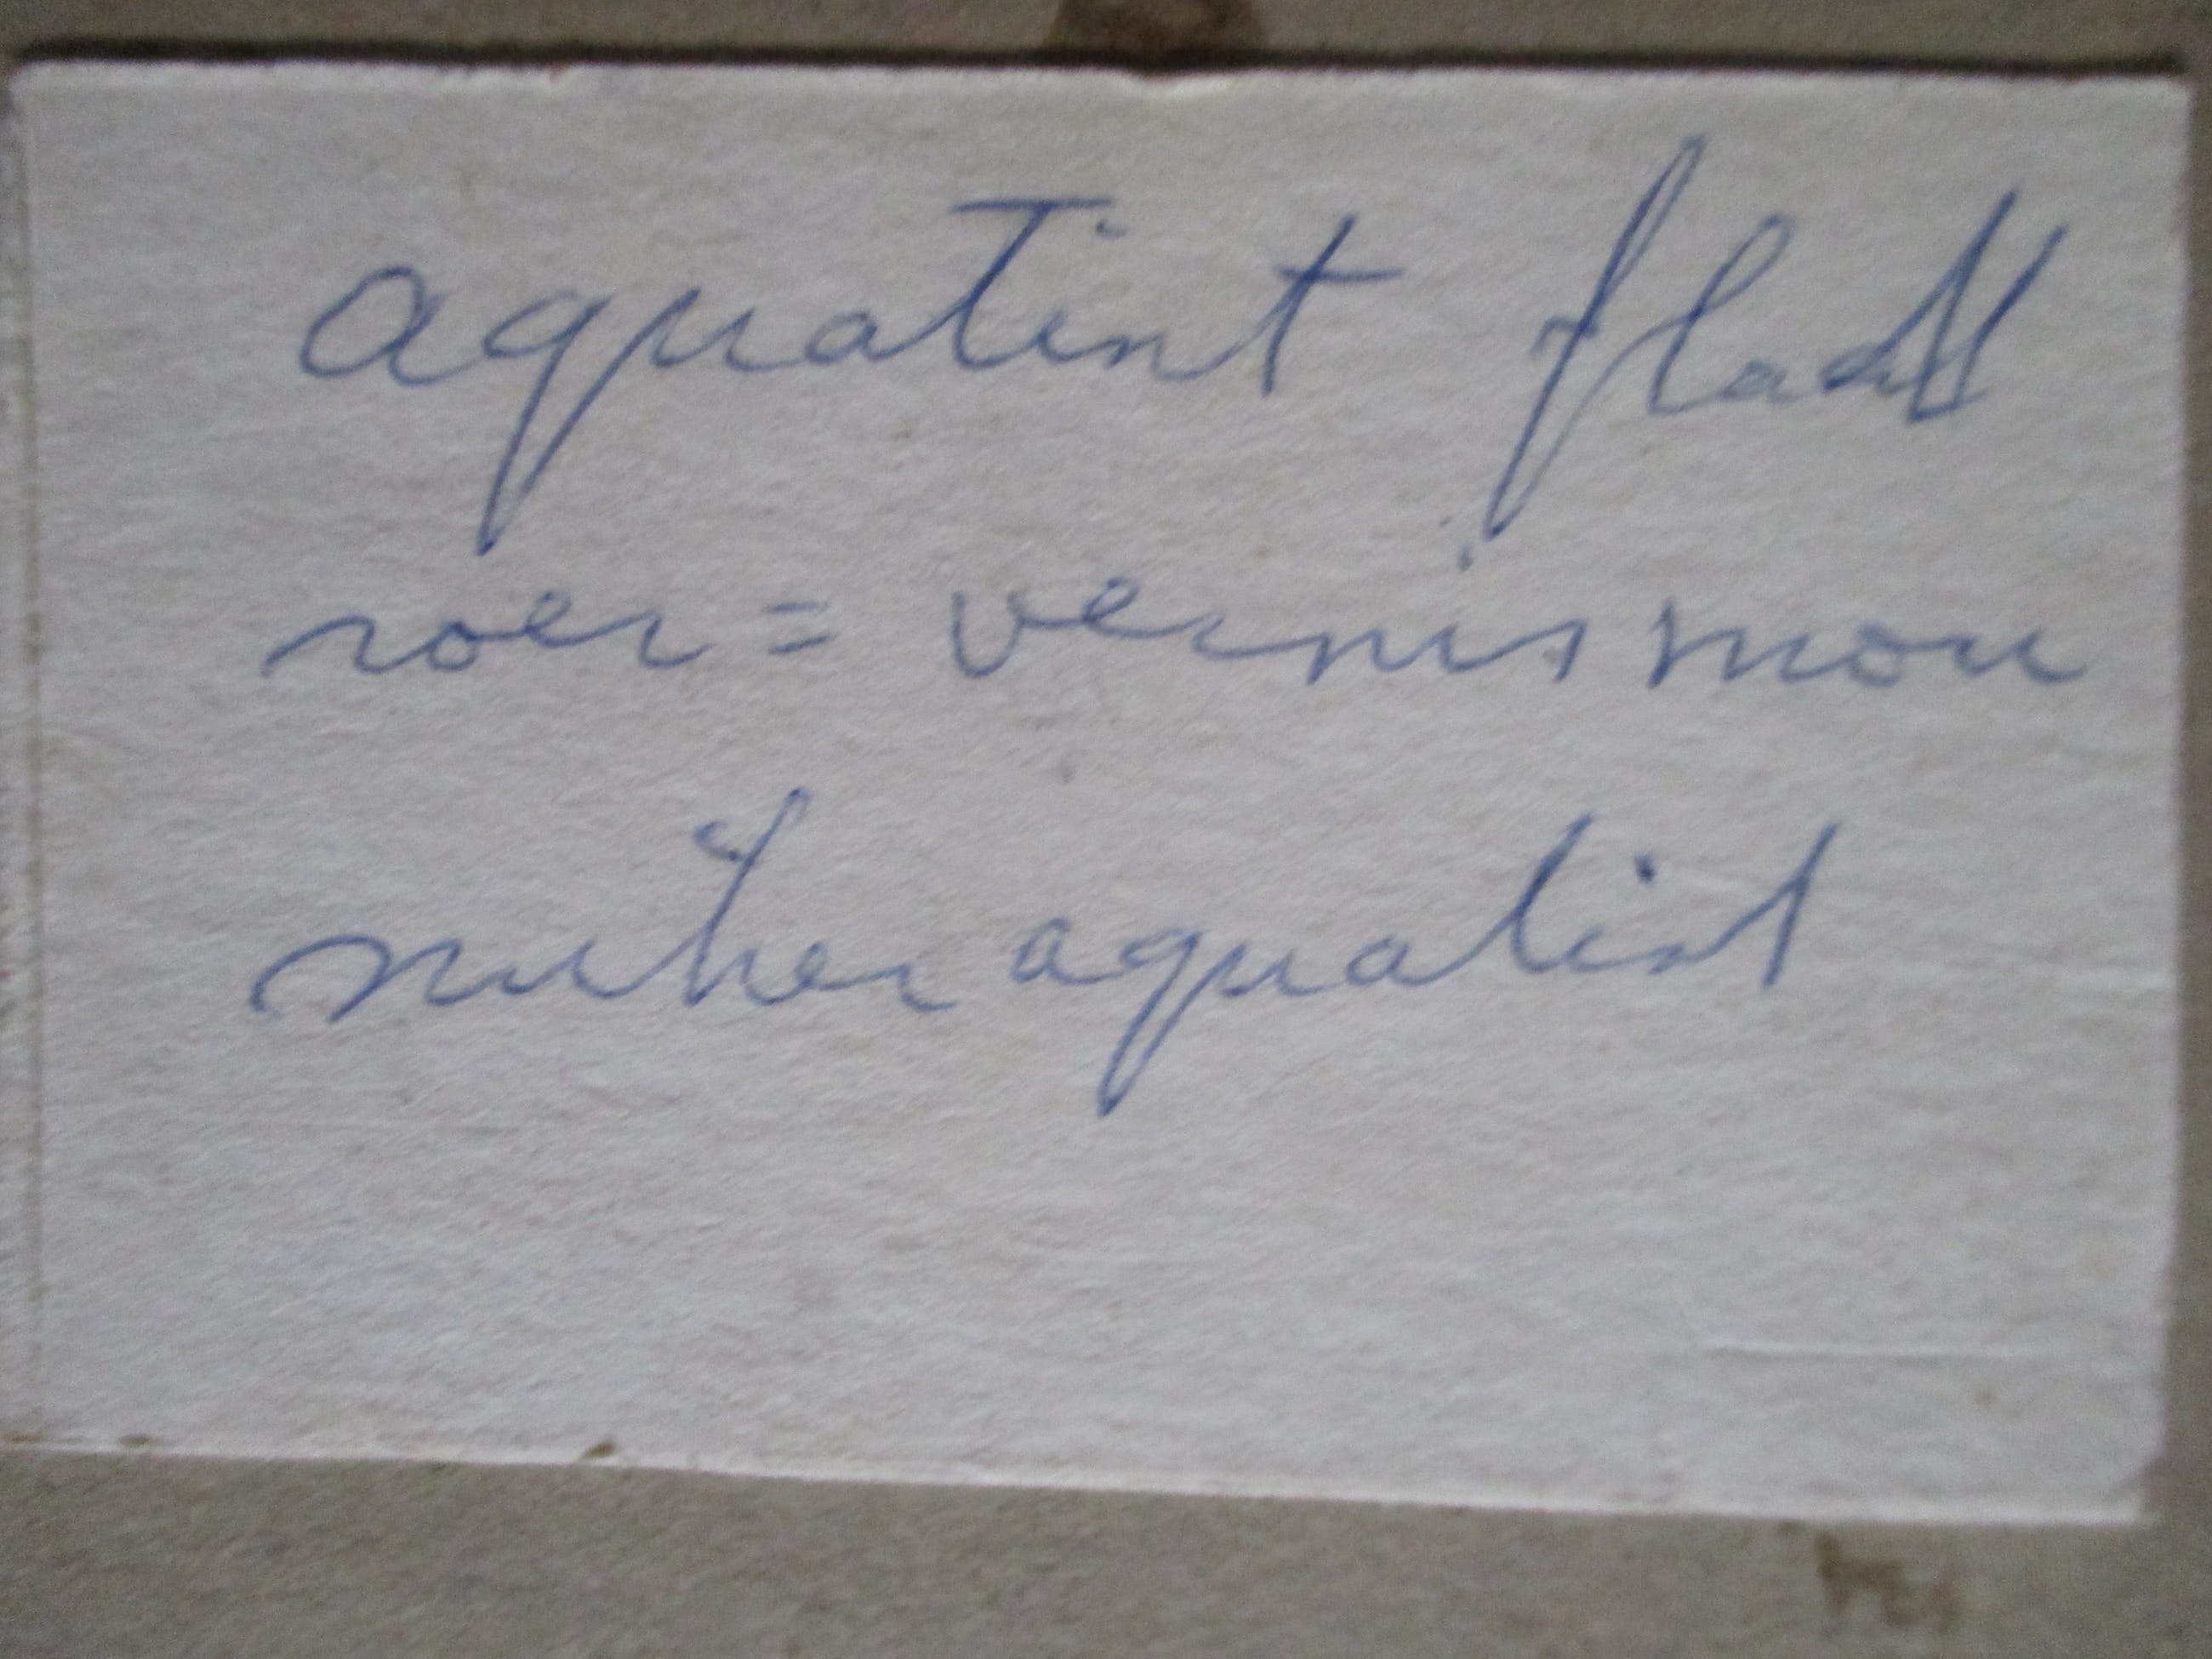 aquatint
roer = vernis mou
suiker aquatint